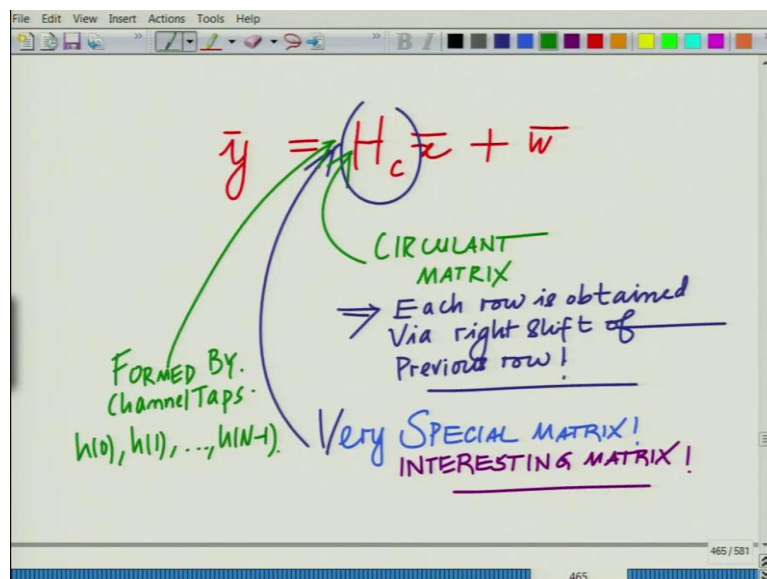 File Edit View Insert Actions Tools Help
B I
ȳ = H_c x̄ + w̄
CIRCULANT
MATRIX
⇒ Each row is obtained
Via right shift of
Previous row!
FORMED BY.
Channel Taps.
h(0), h(1), ..., h(N-1).
Very SPECIAL MATRIX!
INTERESTING MATRIX!
465 / 581
465